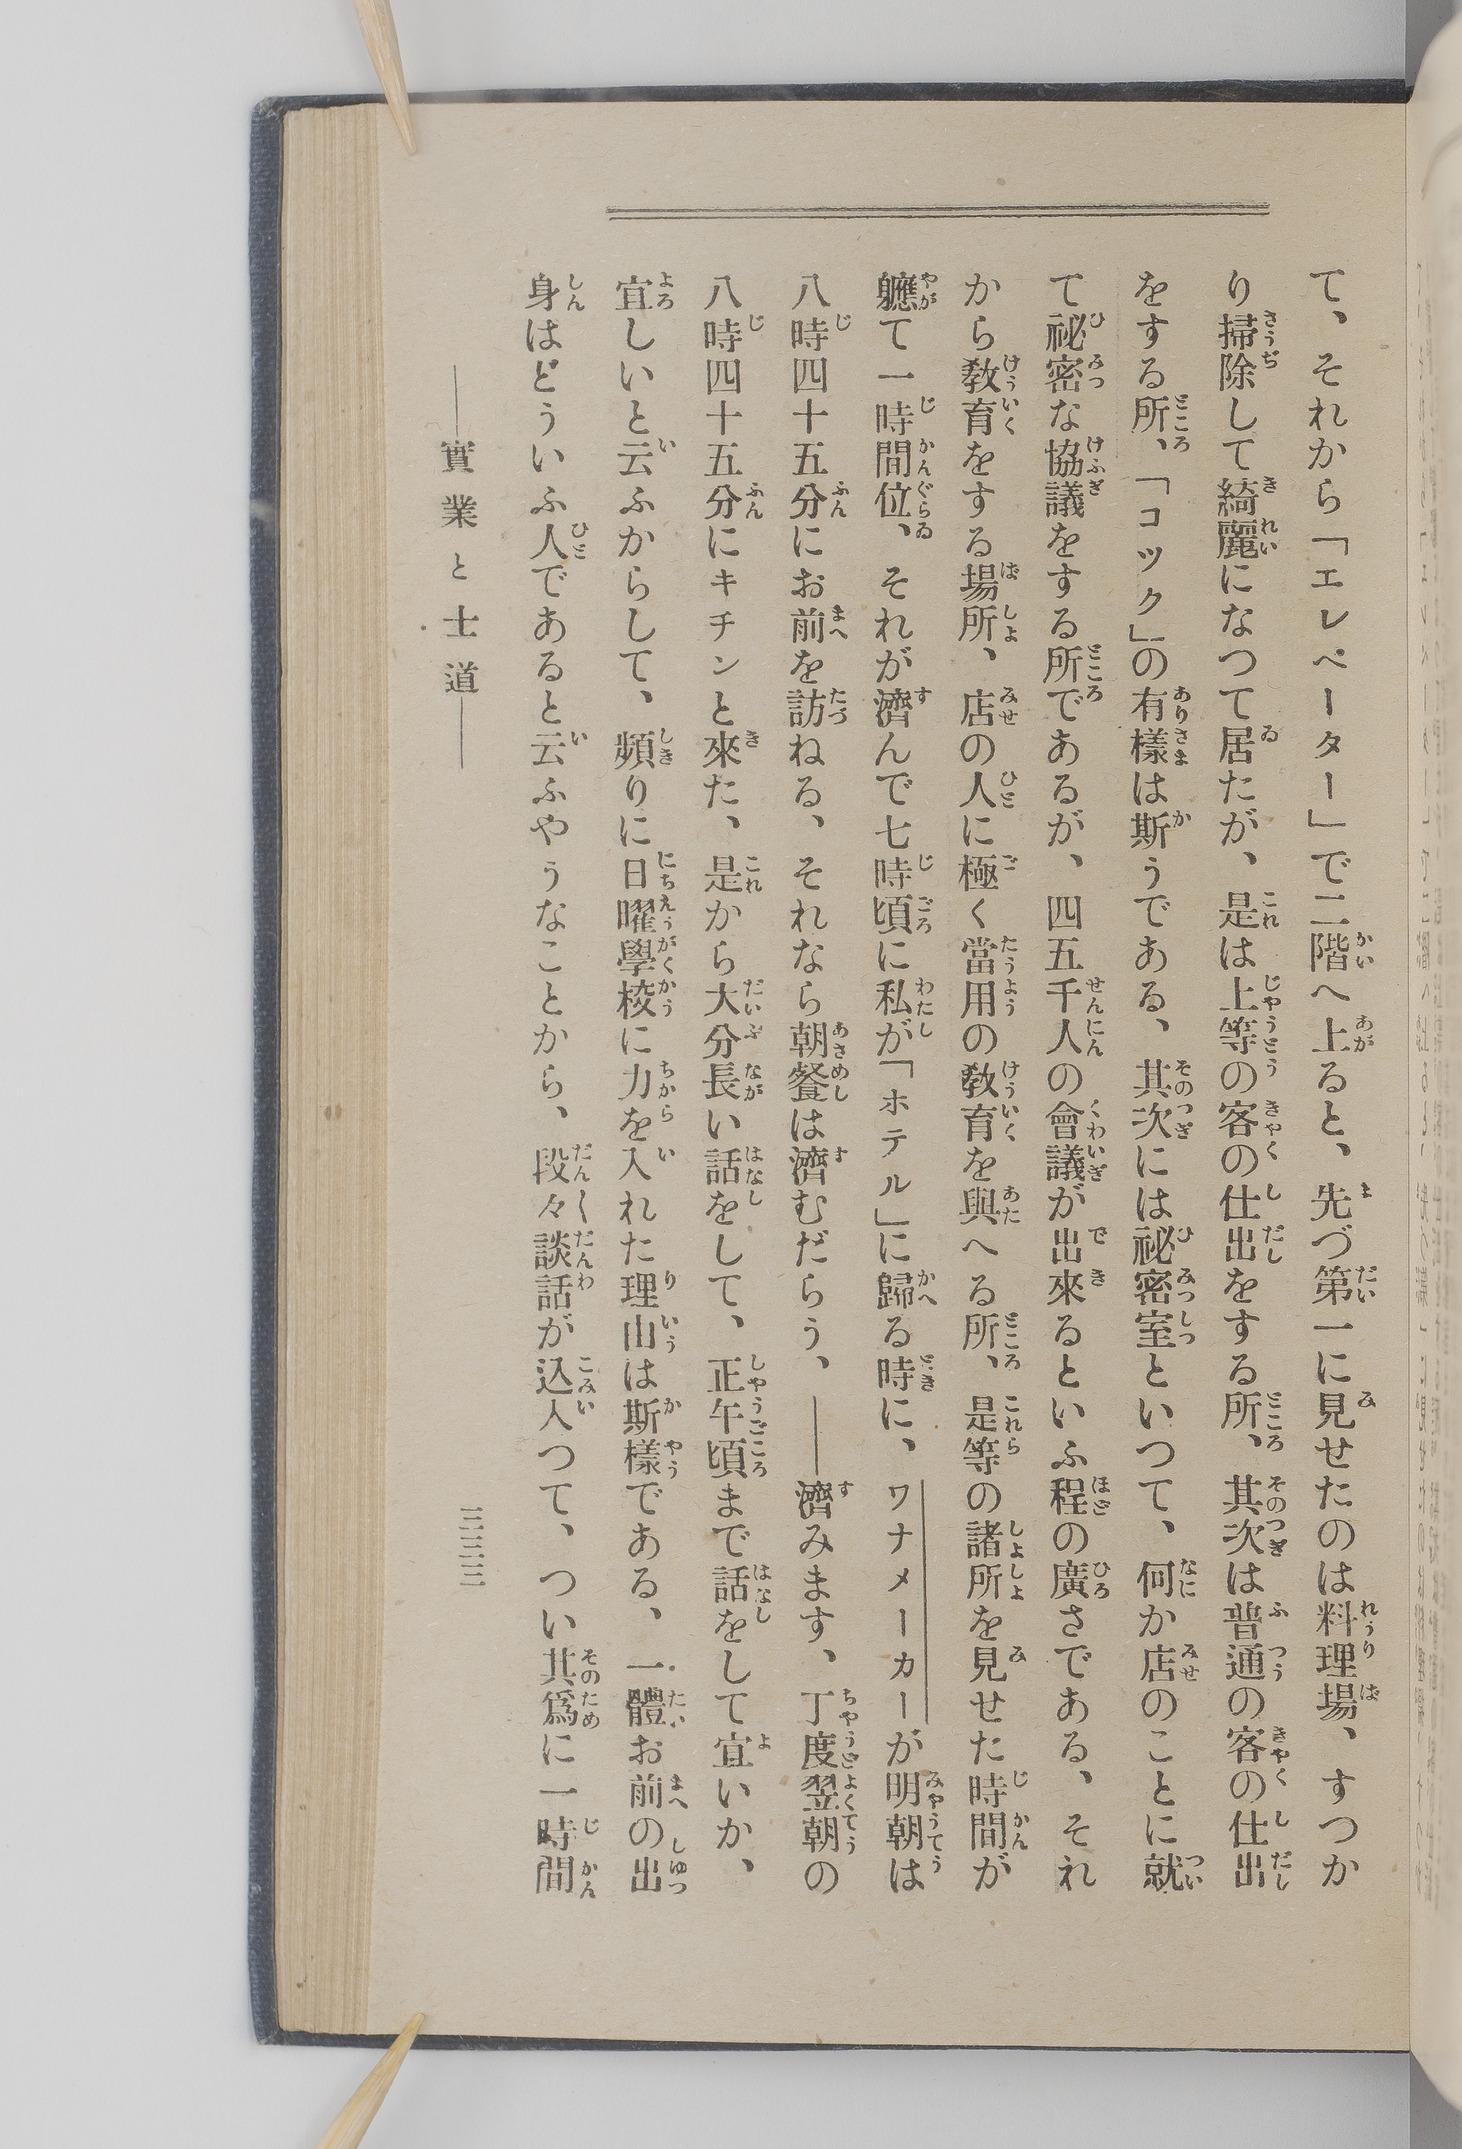 て、それから「エレベーター」で二階へ上ると、先づ第一に見せたのは料理場、すつか
り掃除して綺麗になつて居たが、是は上等の客の仕出をする所、其次は普通の客の仕出
をする所、「コツク」の有樣は斯うである、其次には祕密室といつて、何か店のことに就
て祕密な協議をする所であるが、四五千人の會議が出來るといふ程の廣さである、それ
から教育をする場所、店の人に極く當用の教育を與へる所、是等の諸所を見せた時間が
軈て一時間位、それが濟んで七時頃に私が「ホテル」に歸る時に、ワナメーカーが明朝は
八時四十五分にお前を訪ねる、それなら朝餐は濟むだらう、――濟みます、丁度翌朝の
八時四十五分にキチンと來た、是から大分長い話をして、正午頃まで話をして宜いか、
宜しいと云ふからして、頻りに日曜學校に力を入れた理由は斯樣である、一體お前の出
身はどういふ人であると云ふやうなことから、段々談話が込入つて、つい其爲に一時間
――實業と士道――
三三三